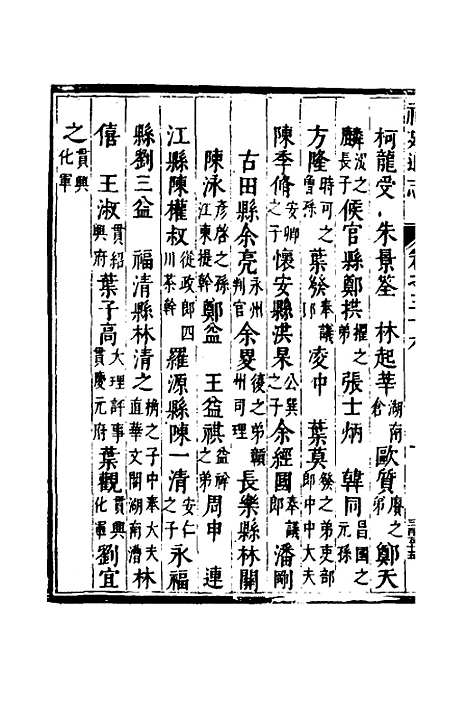 柯龍受 朱景筌 林起莘湖南倉歐質康之弟鄭天
麟汲之長子候官縣鄭拱擢之弟張士炳 韓同昌國之元孫
方隆時可之曾孫葉發奉議郎凌中 葉莫發之弟吏部郎中中大夫
陳季脩安卿之子懷安縣洪杲公巽之子余經國奉議郎潘剛
古田縣余亮永州判官余畟復之弟贛州司理長樂縣林關
陳泳彥啓之孫江東提幹鄭益 王益祺益祥之弟周申 連
江縣陳權叔從政郎四川茶幹羅源縣陳一清安仁之子永福
縣劉三益 福清縣林清之楠之子中奉大夫直華文閣湖南漕林
僖 王淑貫紹興府葉子高大理評事貫慶元府葉觀貫興化軍劉宜
之貫興化軍